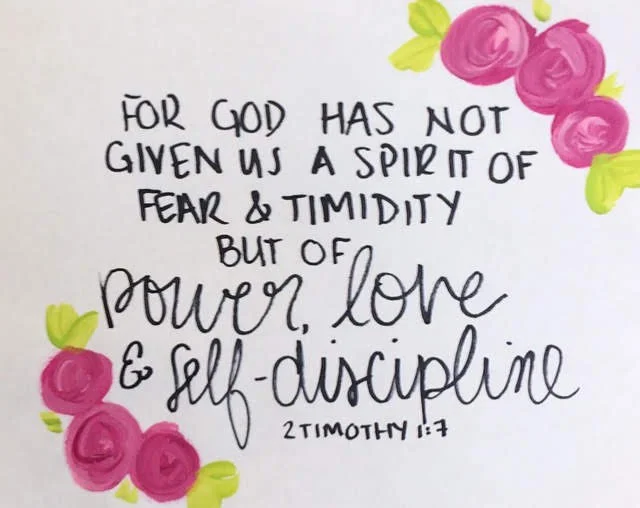 FOR GOD HAS NOT
GIVEN US A SPIRIT OF
FEAR & TIMIDITY
BUT OF
power, love
& self-discipline
2 TIMOTHY 1:7